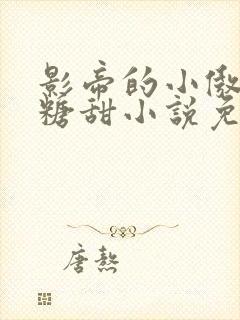 影帝的小傲
糖甜小說免
唐熬